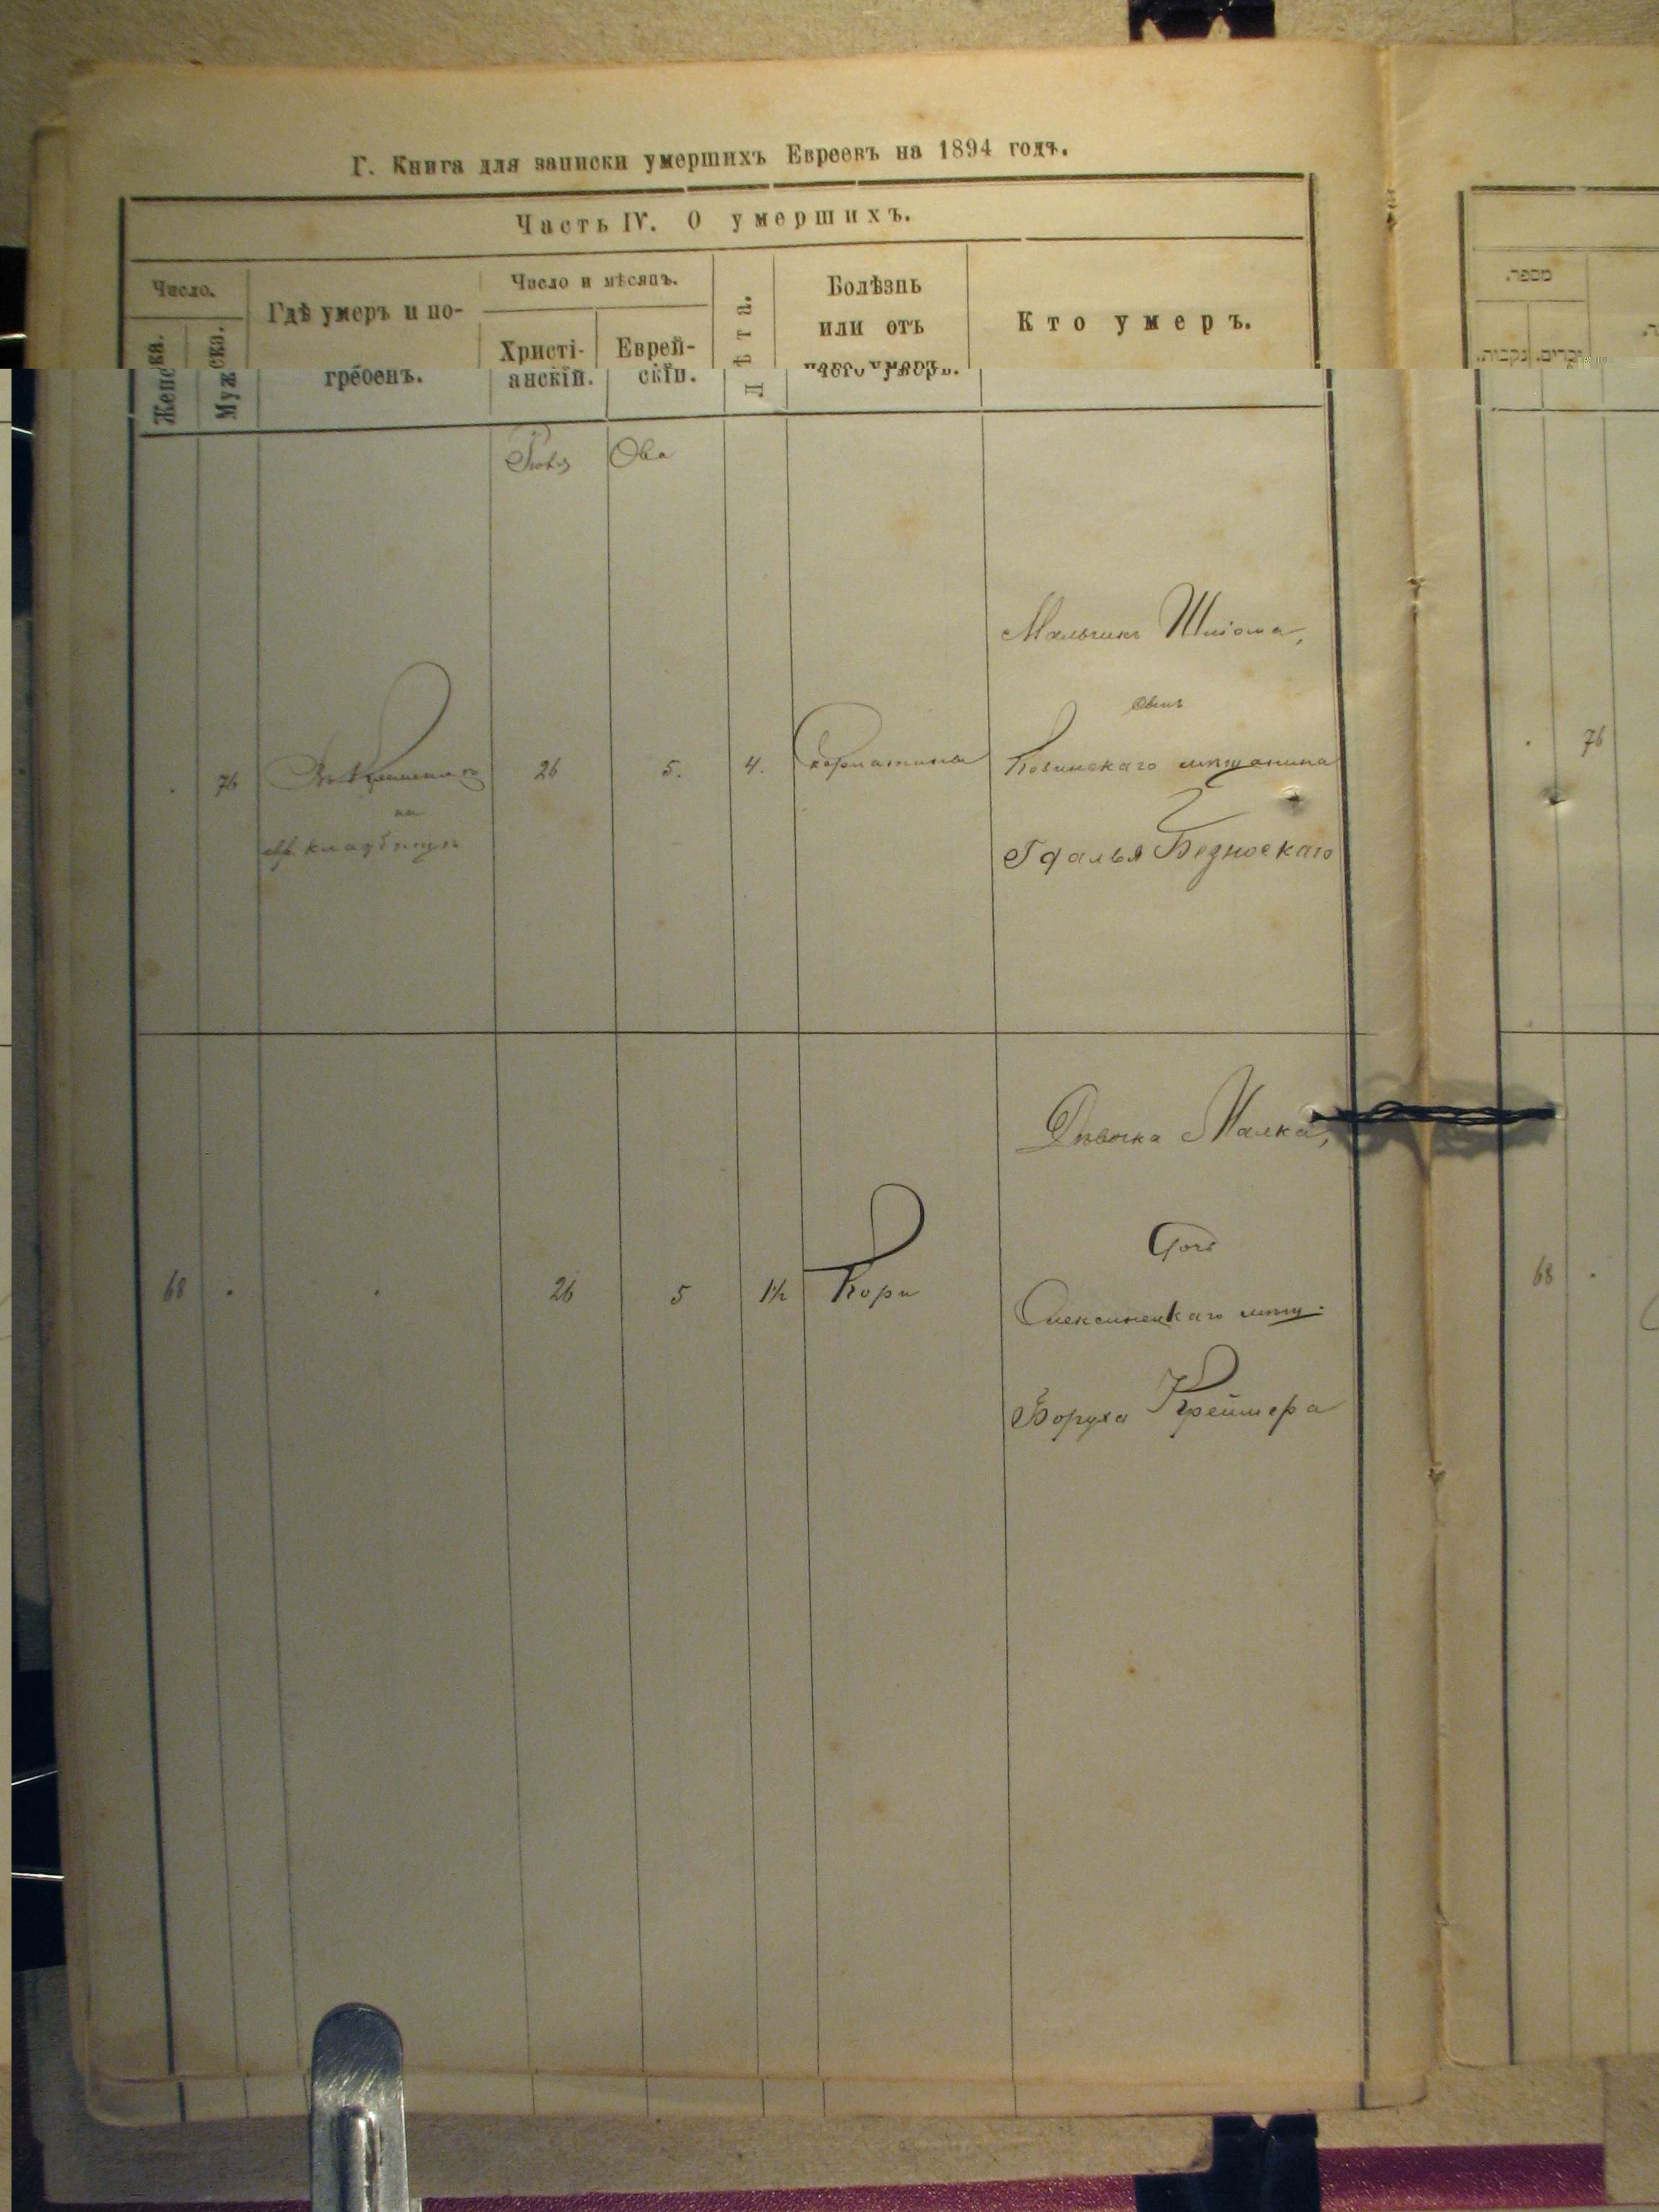 Г. Книга для записки умершихъ Евреевъ на 1894 годъ.
Часть IV. О умершихъ.
Число.
Женска.
Мужска.
Гдѣ умеръ и по-
гребенъ.
Число и мѣсяцъ.
Христі-
анскій.
Еврей-
скій.
Лѣта.
Болѣзнь
или отъ
чего умеръ.
Кто умеръ.
מספר.
זכרים.
נקבות.
Іюля
Ова
76
на
евр. кладбищѣ
26
5.
4.
Скарлатина
Мальчикъ Шліома,
сынъ
Ковинскаго мѣщанина
Гдалья Безноскаго
76
68
26
5
1½
Кори
Дѣвочка Малка,
дочь
Олексинецкаго мѣщ.
Боруха Креймера
68